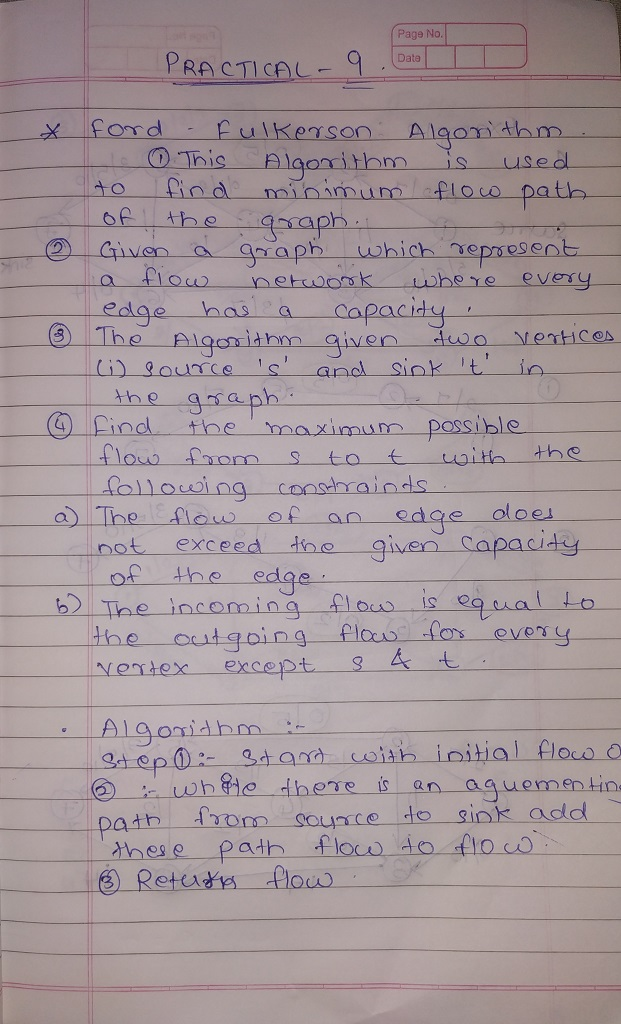 Page No.
Date
PRACTICAL - 9.
* Ford - Fulkerson Algorithm.
① This Algorithm is used
to find minimum flow path
of the graph.
② Given a graph which represent
a flow network where every
edge has a capacity.
③ The Algorithm given two vertices
(i) source 's' and sink 't' in
the graph.
④ Find the maximum possible
flow from s to t with the
following constraints.
a) The flow of an edge does
not exceed the given capacity
of the edge.
b) The incoming flow is equal to
the outgoing flow for every
vertex except s & t.
• Algorithm :-
Step ① :- Start with initial flow 0
② :- while there is an aguementing
path from source to sink add
these path flow to flow.
③ Return flow.